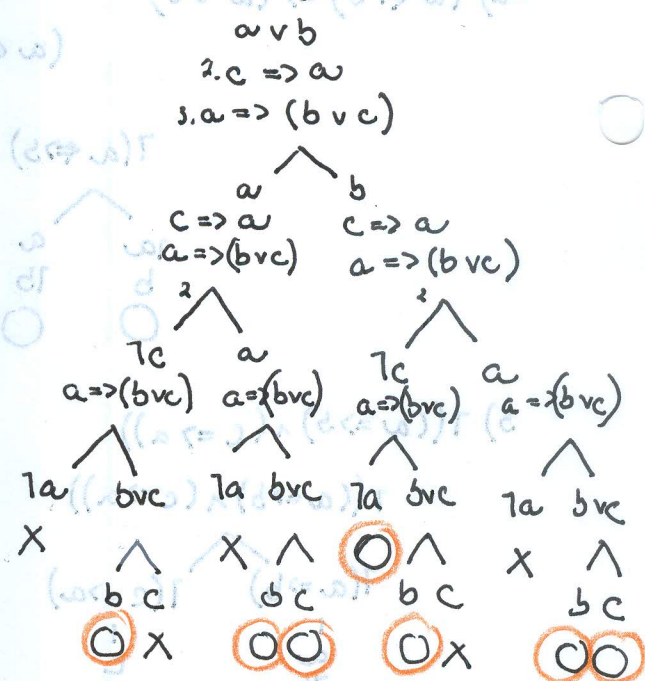 a v b
2. c => a
3. a => (b v c)
a b
c => a c => a
a => (b v c) a => (b v c)
2 2
7c a 7c a
a => (b v c) a => (b v c) a => (b v c) a => (b v c)
7a b v c 7a b v c 7a b v c 7a b v c
X X O X
b c b c b c b c
O X O O O X O O